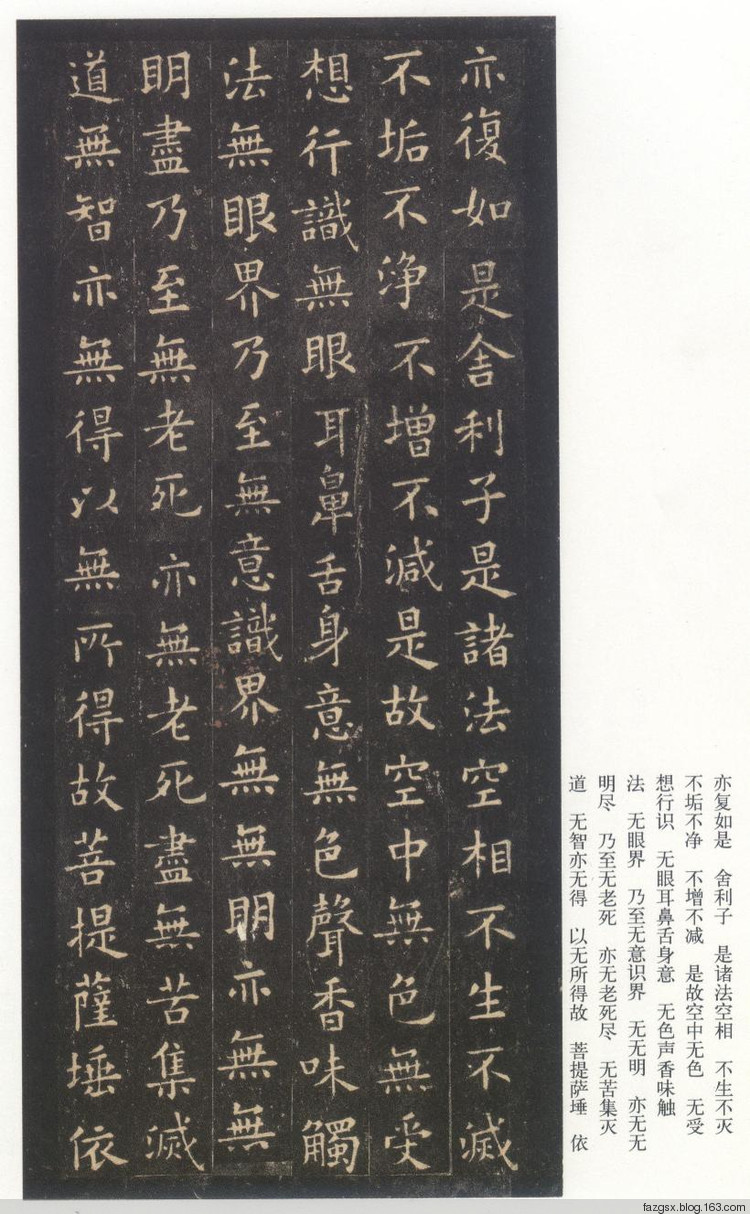 亦復如是舍利子是諸法空相不生不滅
不垢不淨不增不減是故空中無色無受
想行識無眼耳鼻舌身意無色聲香味觸
法無眼界乃至無意識界無無明亦無無
明盡乃至無老死亦無老死盡無苦集滅
道無智亦無得以無所得故菩提薩埵依
亦复如是 舍利子 是诸法空相 不生不灭
不垢不净 不增不减 是故空中无色 无受
想行识 无眼耳鼻舌身意 无色声香味触
法 无眼界 乃至无意识界 无无明 亦无无
明尽 乃至无老死 亦无老死尽 无苦集灭
道 无智亦无得 以无所得故 菩提萨埵 依
fazgsx.blog.163.com